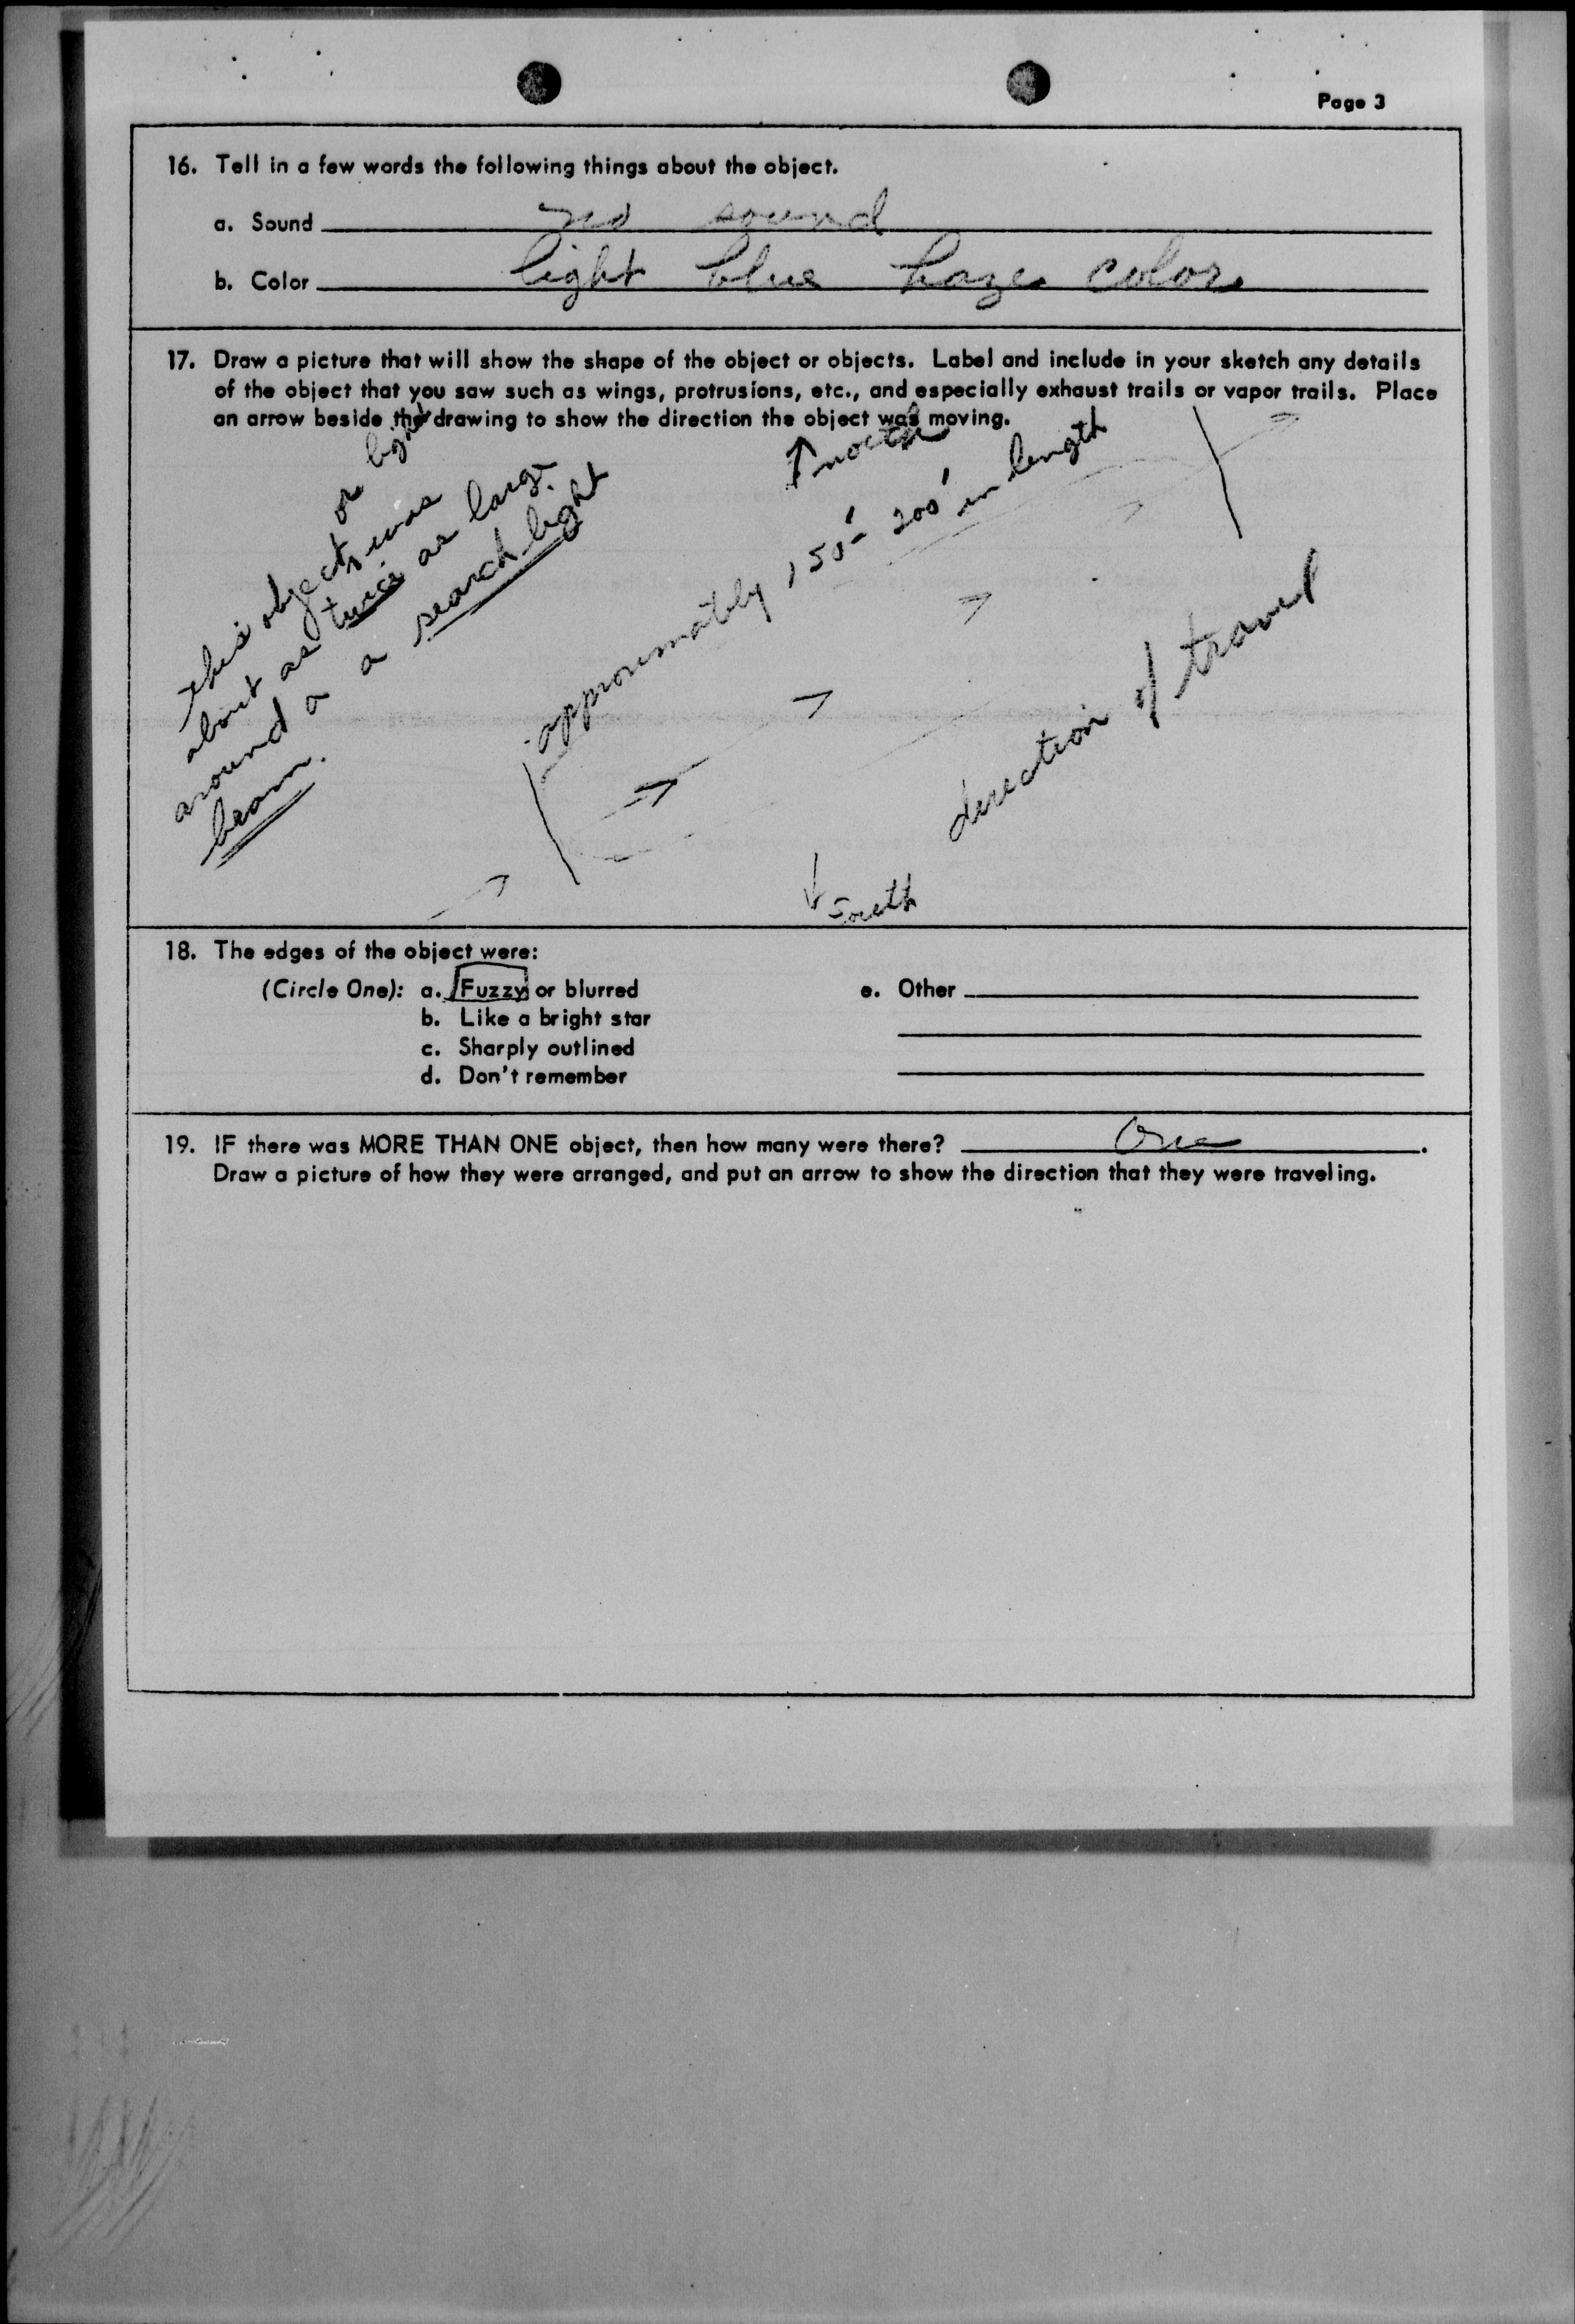 Page 3
16. Tell in a few words the following things about the object.
a. Sound no sound
b. Color light blue haze color
17. Draw a picture that will show the shape of the object or objects. Label and include in your sketch any details
of the object that you saw such as wings, protrusions, etc., and especially exhaust trails or vapor trails. Place
an arrow beside the drawing to show the direction the object was moving.
or light
this object was
about as twice as large
around a a search light
beam.
north
approximately 150'- 200' in length
direction of travel
South
18. The edges of the object were:
(Circle One): a. Fuzzy or blurred
b. Like a bright star
c. Sharply outlined
d. Don't remember
e. Other
19. IF there was MORE THAN ONE object, then how many were there? One.
Draw a picture of how they were arranged, and put an arrow to show the direction that they were traveling.